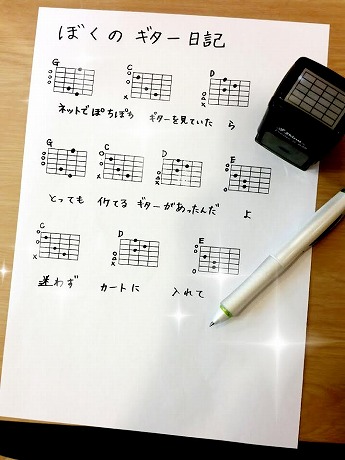 ぼくの ギター日記
G C D
ネットでぽちぽち ギターを見ていた ら
G C D E
とっても イケてる ギターがあったんだ よ
C D E
迷わず カートに 入れて